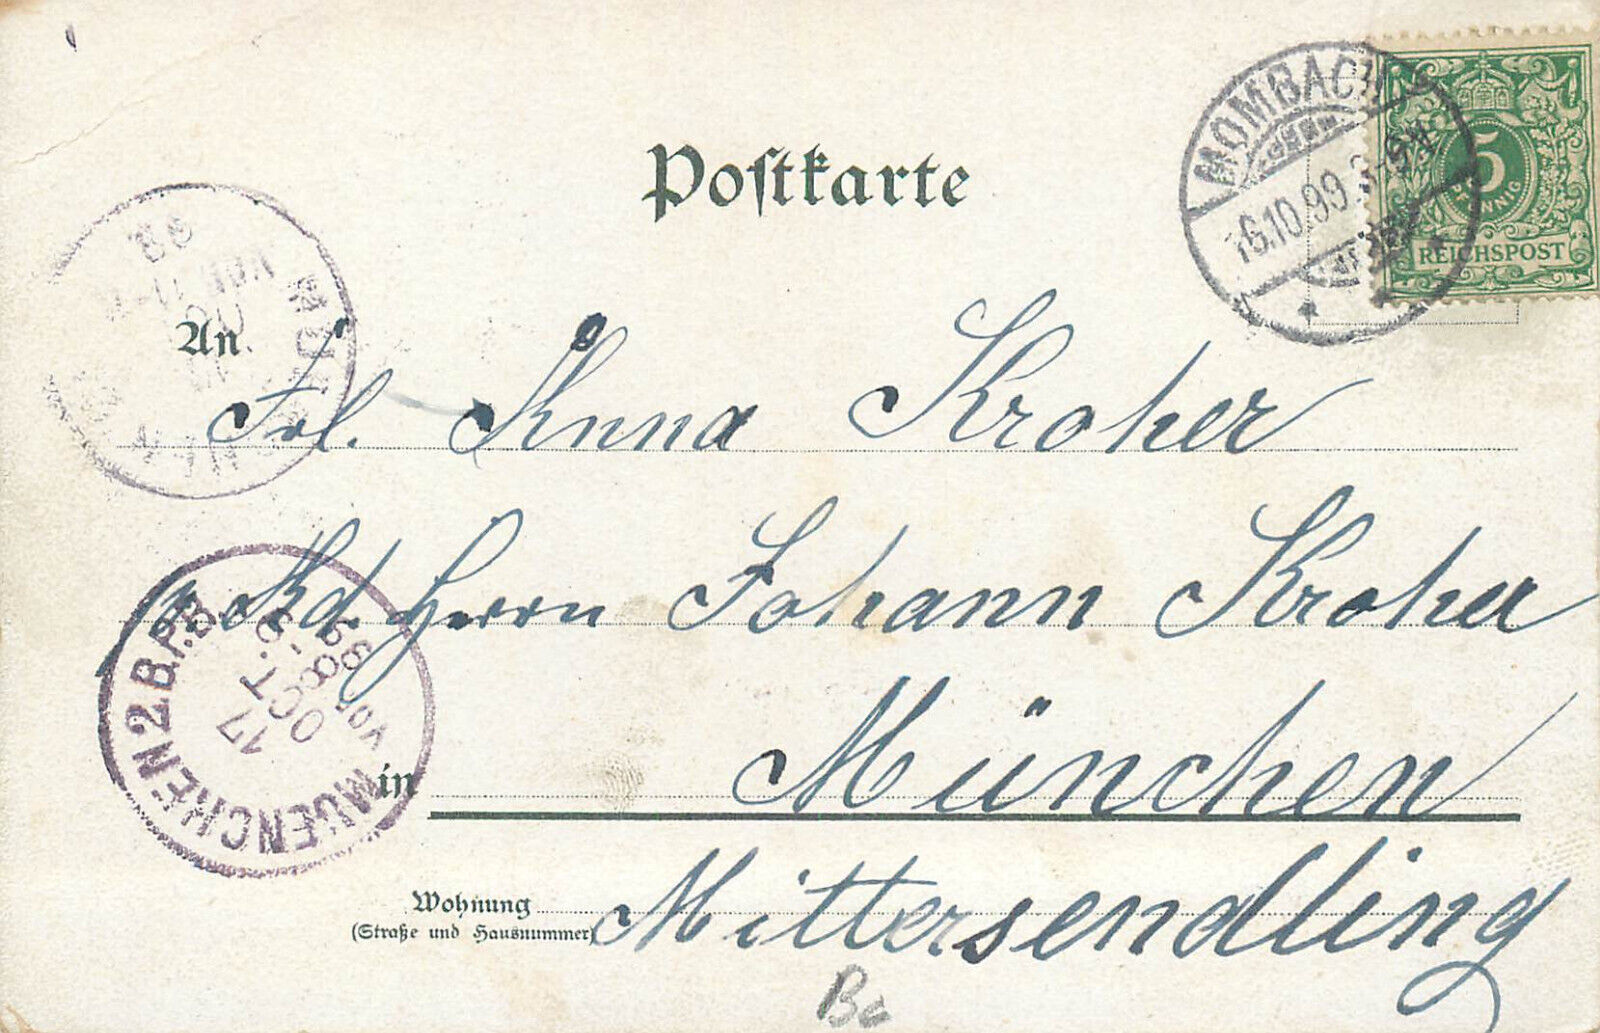 Postkarte
MOMBACH
16.10.99. 3-
5
PFENNIG
REICHSPOST
An
Frl. Anna Kroher
Adr. Herrn Johann Kroher
in München
Wohnung Mittersendling
(Straße und Hausnummer)
MUENCHEN 2.B.P.B.
17
OCT
VOR
99